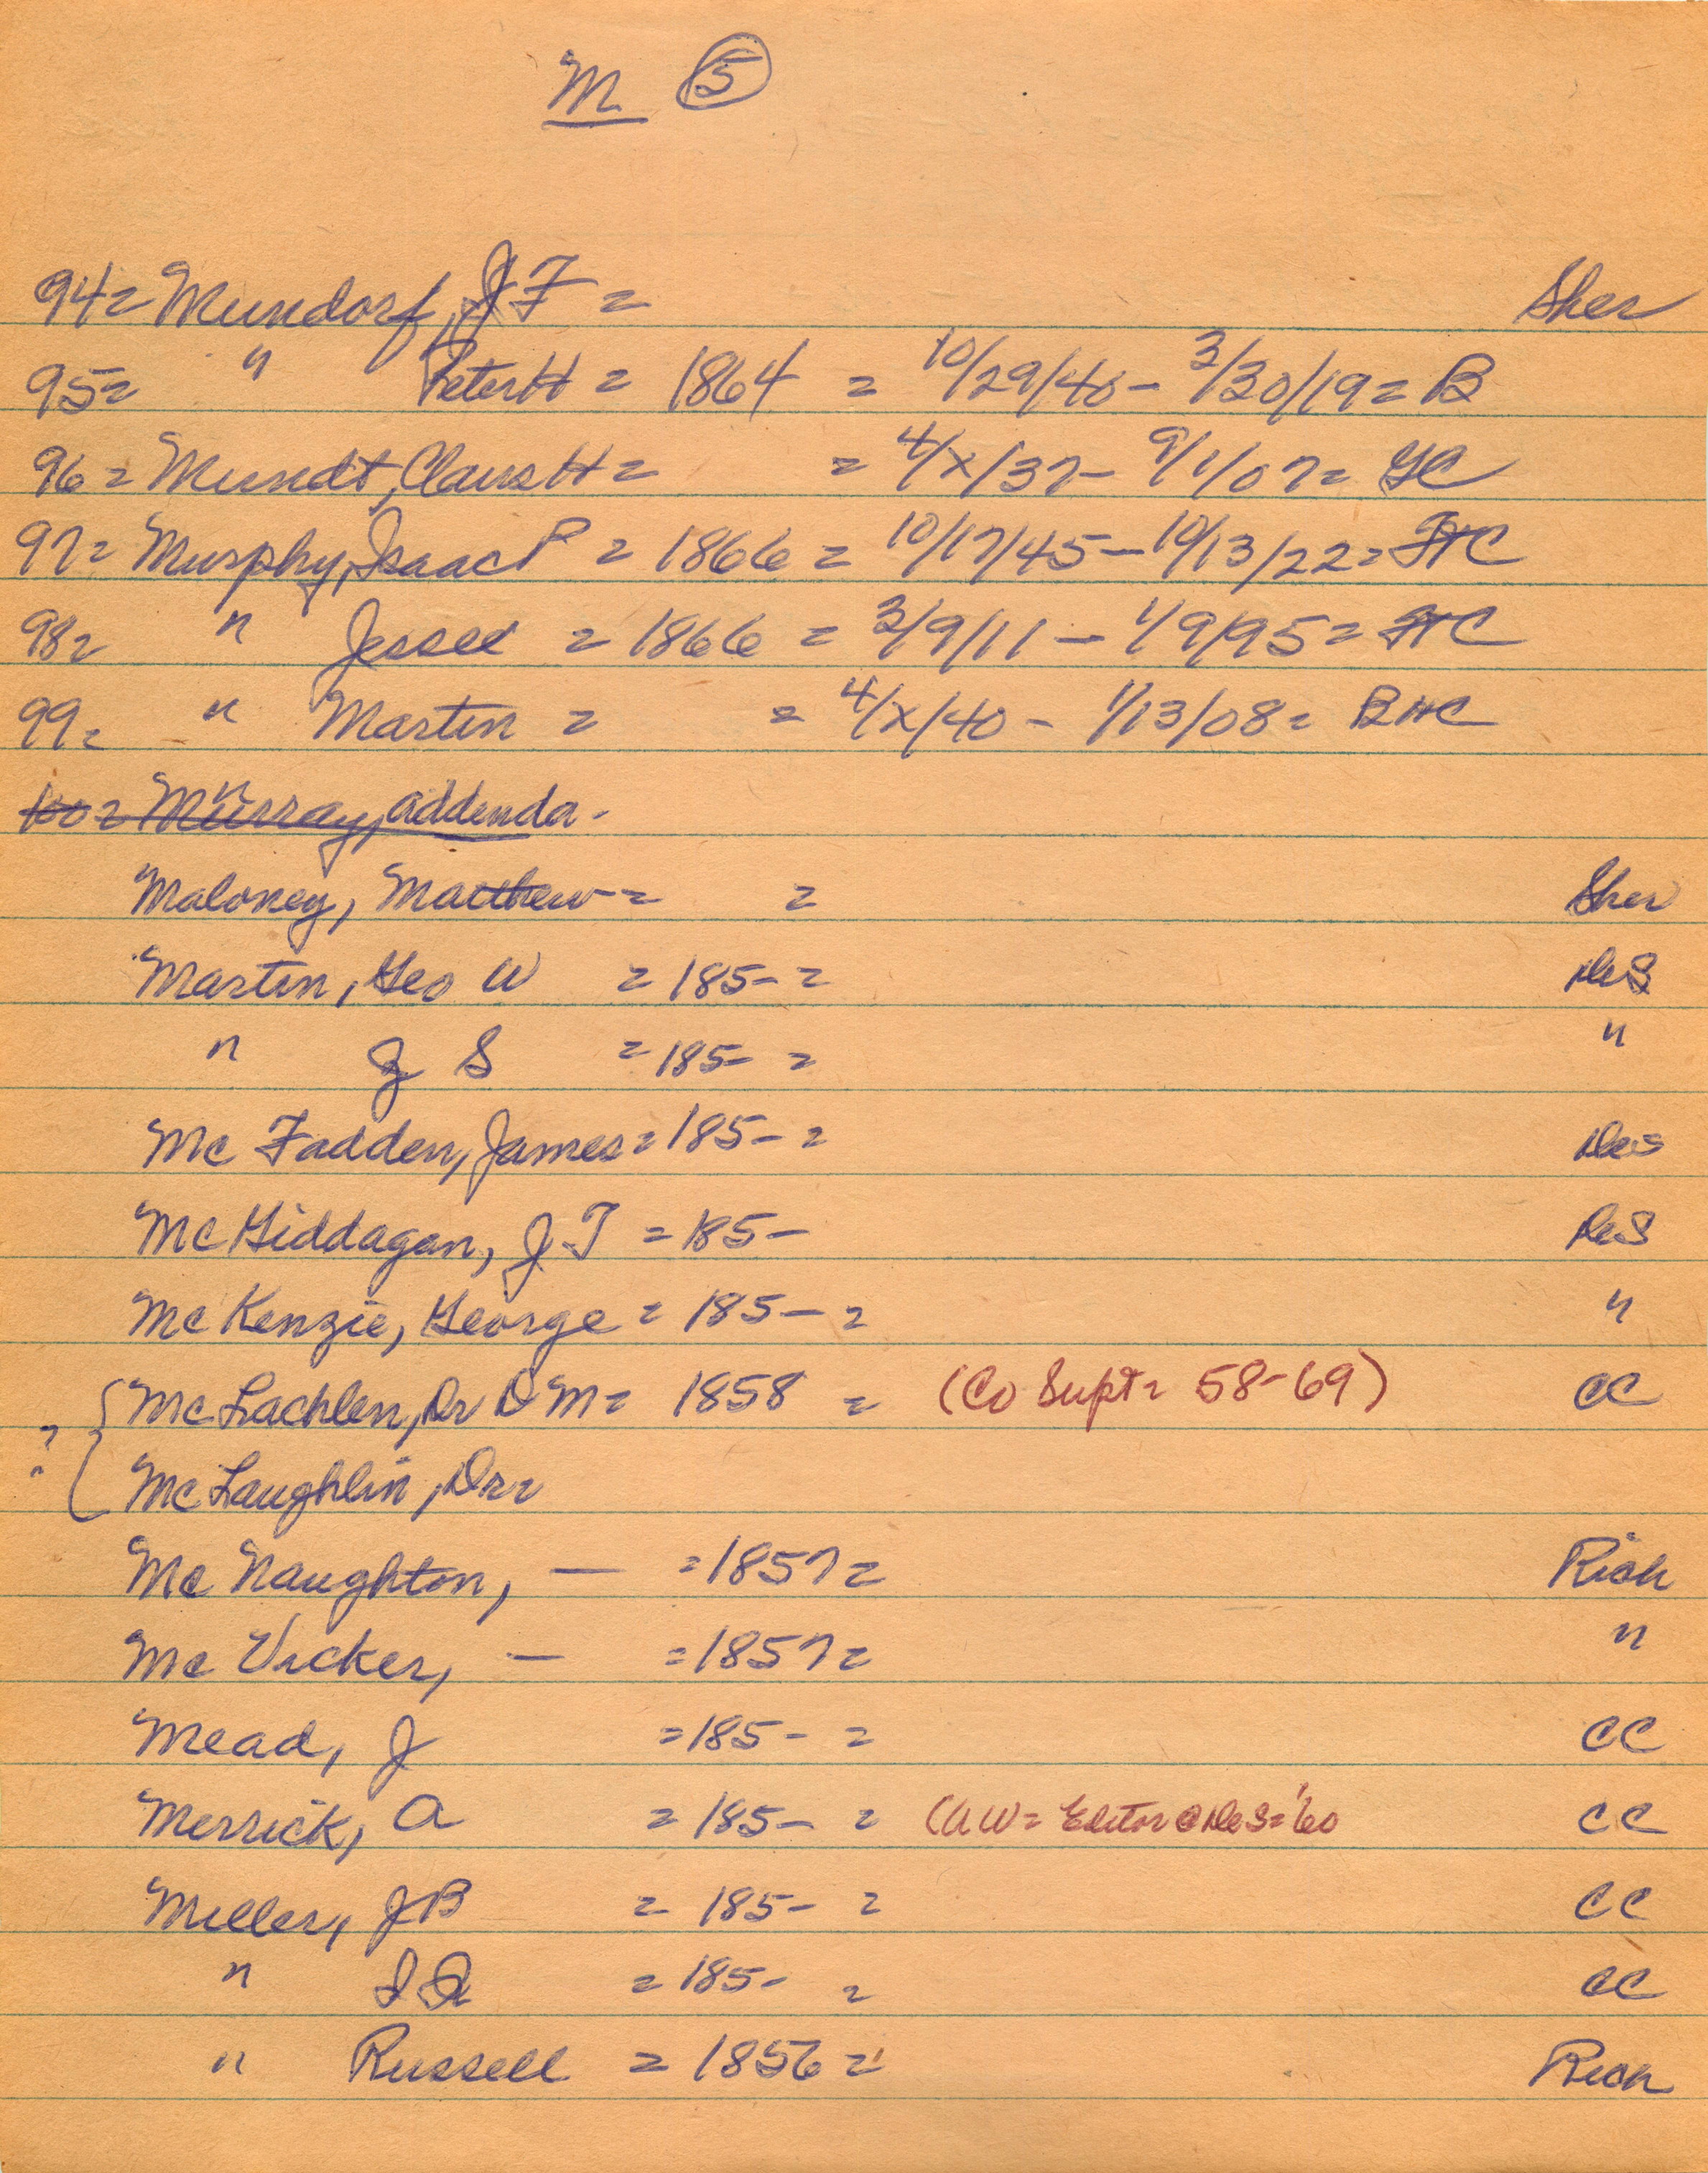 M 5
94= Mundorf, J F = Sher
95= " Peter H = 1864 = 10/29/40 - 3/30/19 = B
96= Mundt, Claus H = = 4/x/37 - 9/1/07 = GC
97= Murphy, Isaac P = 1866 = 10/17/45 - 10/13/22 = FHC
98= " Jessee = 1866 = 3/9/11 - 1/9/95 = FHC
99= " Martin = = 4/x/40 - 1/13/08 = BHC
100= Murray, addenda -
Maloney, Matthew = = Sher
Martin, Geo W = 185- = DeS
" J S = 185- = "
Mc Fadden, James = 185- = DeS
Mc Giddagan, J T = 185- DeS
Mc Kenzie, George = 185- = "
? { Mc Lachlen, Dr D M = 1858 = (Co Supt = 58-69) CC
Mc Laughlin, Dr =
Mc Naughton, — = 1857 = Rich
Mc Vicker, — = 1857 = "
Mead, J = 185- = CC
Merrick, A = 185- = (AW = Editor @ DeS = '60 CC
Miller, J B = 185- = CC
" = 185- = CC
" Russell = 1856 = Rich